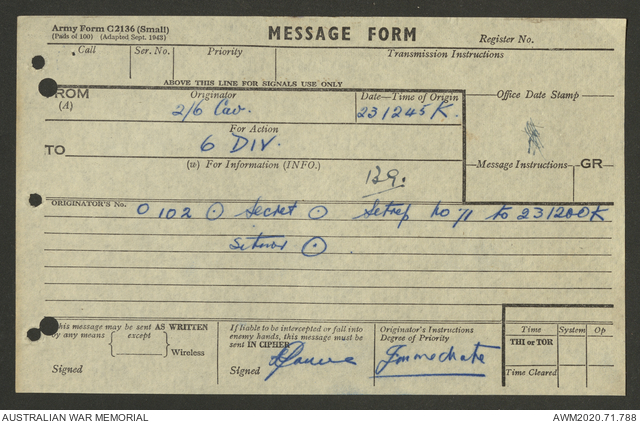 Army Form C2136 (Small)
(Pads of 100) (Adapted Sept. 1943)
MESSAGE FORM
Register No.
Call Ser. No. Priority Transmission Instructions
ABOVE THIS LINE FOR SIGNALS USE ONLY
FROM Originator Date—Time of Origin Office Date Stamp
(A) 2/6 Cav. 231245K.
For Action
TO 6 DIV.
(w) For Information (INFO.) Message Instructions GR
129.
ORIGINATOR'S No. O 102 ⊙ Secret ⊙ Sitrep No 71 to 231200K
⊙
This message may be sent AS WRITTEN
by any means except
Wireless
Signed
If liable to be intercepted or fall into
enemy hands, this message must be
sent IN CIPHER
Signed
Originator's Instructions
Degree of Priority
Immediate
Time System Op
THI or TOR
Time Cleared
AUSTRALIAN WAR MEMORIAL AWM2020.71.788